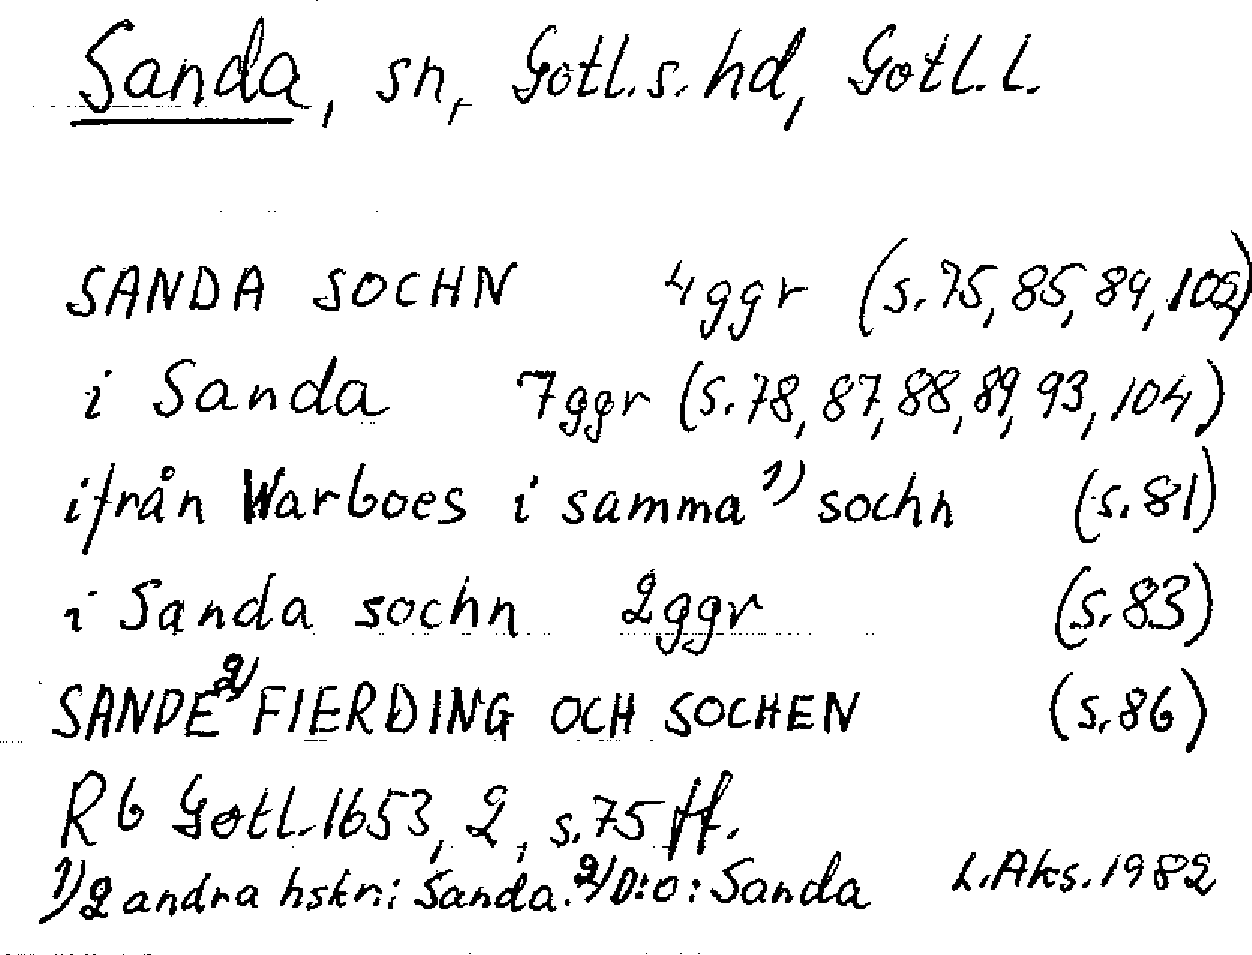 Sanda, sn, Gotl.s.hd, Gotl.l.
SANDA SOCHN 4ggr (s.75, 85, 89, 102)
i Sanda 7ggr (s.78, 87, 88, 89, 93, 104)
ifrån Warboes i samma 1) sochn (s.81)
i Sanda sochn 2ggr (s.83)
SANDE 2) FIERDING OCH SOCHEN (s.86)
Rb Gotl.1653, 2, s.75 ff.
1) 2 andra hskr: Sanda. 2) D:o: Sanda L.Aks.1982